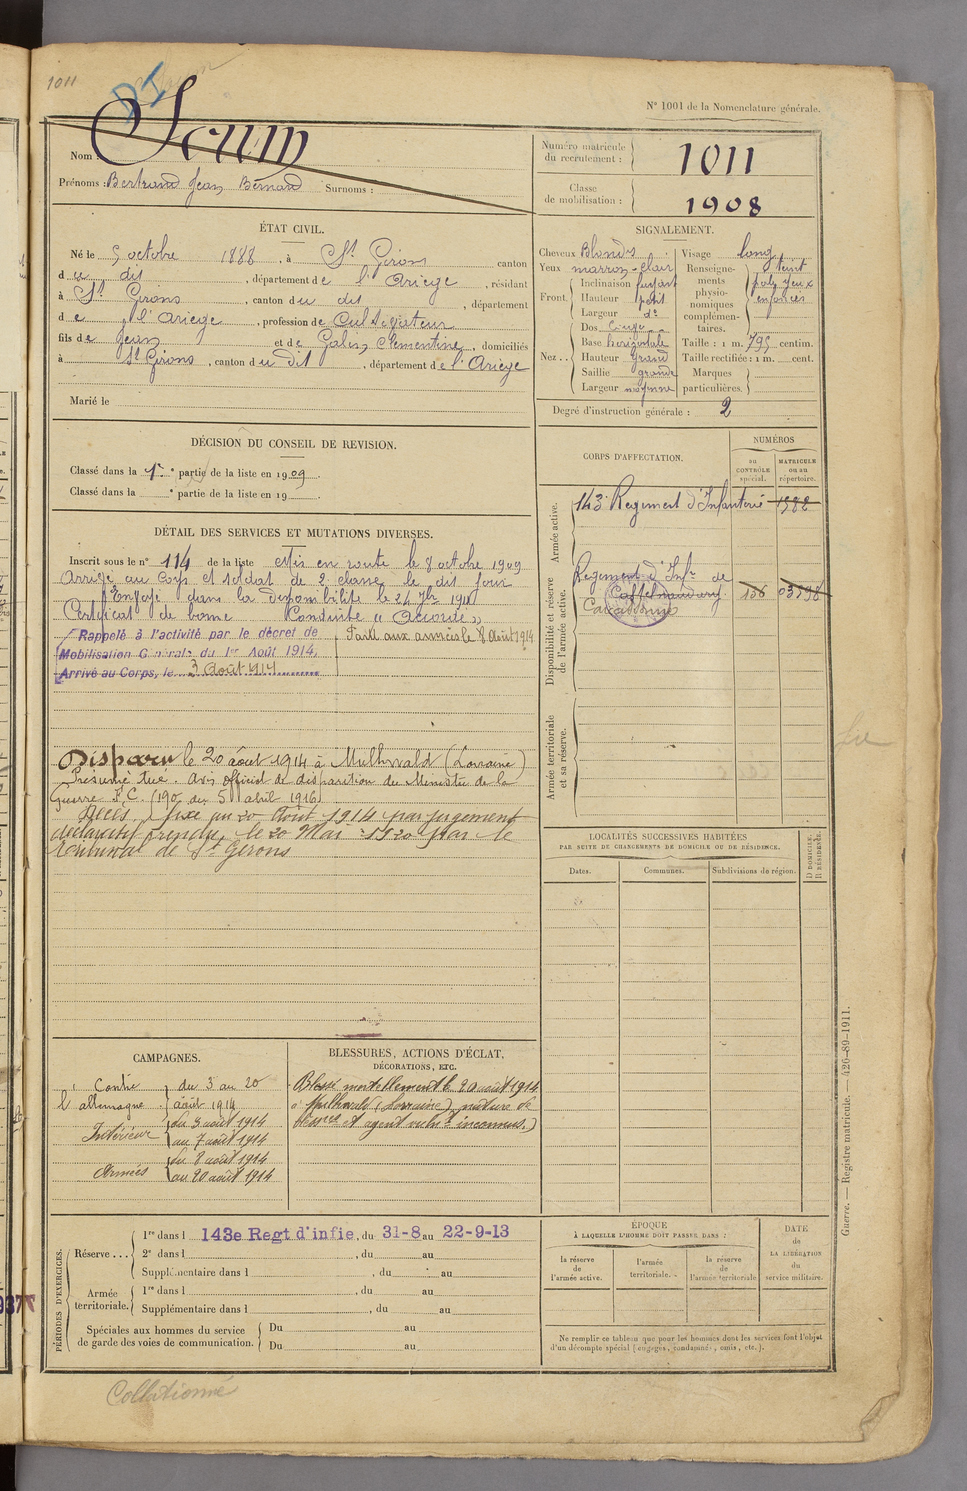 1011
DI
N° 1001 de la Nomenclature générale.
Nom :
Prénoms : Bertrand Jean Bernard Surnoms :
Numéro matricule du recrutement : 1011
Classe de mobilisation : 1908
ÉTAT CIVIL.
Né le 5 octobre 1888, à St Girons canton
du dit, département de l'Ariège, résidant
à St Girons, canton du dit, département
de l'Ariège, profession de Cultivateur
fils de Jean et de Galin Clémentine, domiciliés
à St Girons, canton du dit, département de l'Ariège
Marié le
SIGNALEMENT.
Cheveux Blonds
Yeux marron-clair
Front. Inclinaison fuyant
Hauteur petit
Largeur do
Nez.. Dos
Base horizontale
Hauteur Grand
Saillie grande
Largeur moyenne
Visage long
Renseignements physionomiques complémentaires. teint pâle yeux enfoncés
Taille : 1 m. 795 centim.
Taille rectifiée : 1 m. cent.
Marques particulières.
Degré d'instruction générale : 2
DÉCISION DU CONSEIL DE REVISION.
Classé dans la 1re partie de la liste en 1909.
Classé dans la e partie de la liste en 19
CORPS D'AFFECTATION.
NUMÉROS
au CONTRÔLE spécial.
MATRICULE ou au répertoire.
Armée active.
143e Régiment d'Infanterie 1982
Disponibilité et réserve de l'armée active.
Régiment d'Infie de
Castelnaudary 136 03598
Carcassonne
Armée territoriale et sa réserve.
DÉTAIL DES SERVICES ET MUTATIONS DIVERSES.
Inscrit sous le n° 114 de la liste Mis en route le 8 octobre 1909
Arrivé au Corps et soldat de 2e classe le dit jour
dans la disponibilité le 24 7bre 1911
Certificat de bonne Conduite "Accordé"
Rappelé à l'activité par le décret de
Mobilisation Générale du 1er Août 1914.
Arrivé au Corps, le 3 Août 1914
Parti aux armées le 8 Août 1914
Disparu le 20 août 1914 à Mulhwald (Lorraine)
Présumé tué. Avis officiel de disparition du Ministre de la
Guerre F.C. (190 du 5 abril 1916)
Décès fixé au 20 Août 1914 par jugement
déclaratif rendu, le 20 Mai 1920 par le
tribunal de St Girons
LOCALITÉS SUCCESSIVES HABITÉES
PAR SUITE DE CHANGEMENTS DE DOMICILE OU DE RÉSIDENCE.
Dates.
Communes.
Subdivisions de région.
D DOMICILE.
R RÉSIDENCE.
CAMPAGNES.
Contre l'allemagne du 3 au 20 août 1914
Intérieur du 3 août 1914
au 7 août 1914
Armées du 8 août 1914
au 20 août 1914
BLESSURES, ACTIONS D'ÉCLAT,
DÉCORATIONS, ETC.
Blessé mortellement le 20 août 1914
à Mulhwald (Lorraine) nature de
blessures et agent vulnt inconnus.)
PÉRIODES D'EXERCICES.
Réserve...
1re dans l 143e Regt d'infie, du 31-8 au 22-9-13
2e dans l , du au
Supplémentaire dans l , du au
Armée territoriale.
1re dans l , du au
Supplémentaire dans l , du au
Spéciales aux hommes du service
de garde des voies de communication.
Du au
Du au
ÉPOQUE
À LAQUELLE L'HOMME DOIT PASSER DANS :
la réserve de l'armée active.
l'armée territoriale.
la réserve de l'armée territoriale
DATE DE LA LIBÉRATION du service militaire.
Ne remplir ce tableau que pour les hommes dont les services font l'objet
d'un décompte spécial (engagés, condamnés, omis, etc.).
Guerre. — Registre matricule. — 426-89-1911.
Collationné